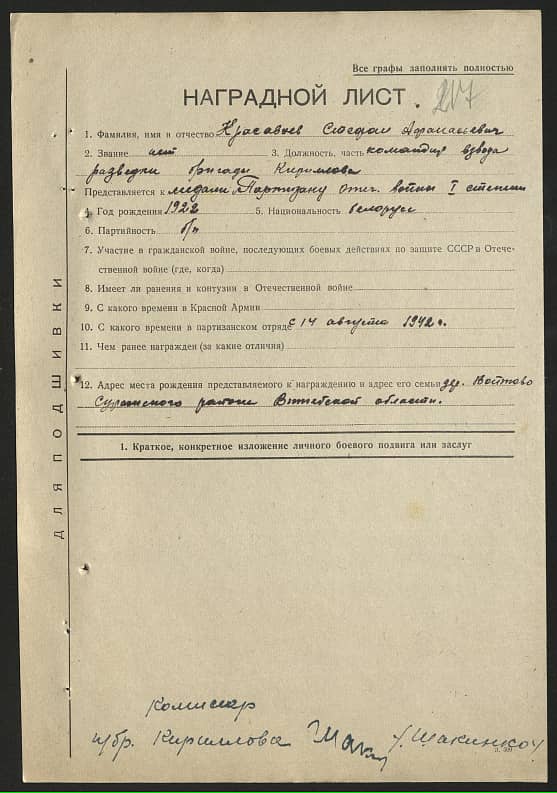 Все графы заполнять полностью
НАГРАДНОЙ ЛИСТ. 217
1. Фамилия, имя и отчество Афанасьевич
2. Звание нет 3. Должность, часть командир взвода
разведки бригады Кириллова
Представляется к медали Партизану отеч. войны I степени
4. Год рождения 1922 5. Национальность белорус
6. Партийность б/п
7. Участие в гражданской войне, последующих боевых действиях по защите СССР в Отече-
ственной войне (где, когда)
8. Имеет ли ранения и контузии в Отечественной войне
9. С какого времени в Красной Армии
10. С какого времени в партизанском отряде с 14 августа 1942 г.
11. Чем ранее награжден (за какие отличия)
12. Адрес места рождения представляемого к награждению и адрес его семьи дер. Войтово
Суражского района Витебской области.
1. Краткое, конкретное изложение личного боевого подвига или заслуг
ДЛЯ ПОДШИВКИ
Комиссар
п/бр. Кириллова /Шакинко/